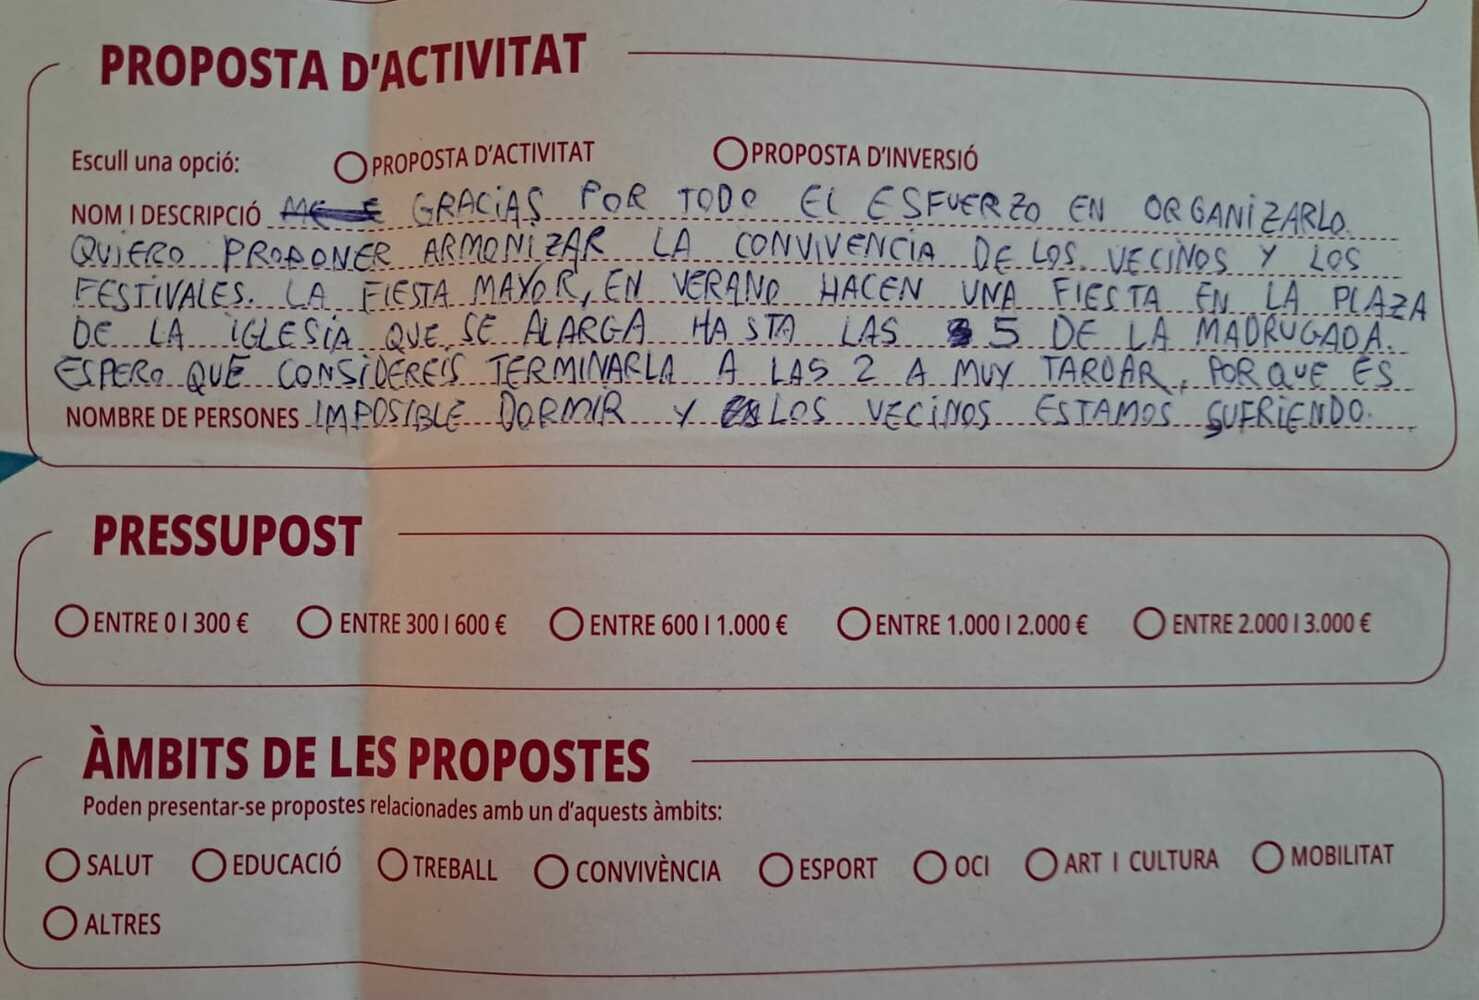 PROPOSTA D'ACTIVITAT
Escull una opció: PROPOSTA D'ACTIVITAT PROPOSTA D'INVERSIÓ
NOM I DESCRIPCIÓ GRACIAS POR TODO EL ESFUERZO EN ORGANIZARLO.
QUIERO PROPONER ARMONIZAR LA CONVIVENCIA DE LOS VECINOS Y LOS
FESTIVALES. LA FIESTA MAYOR, EN VERANO HACEN UNA FIESTA EN LA PLAZA
DE LA IGLESIA QUE SE ALARGA HASTA LAS 5 DE LA MADRUGADA.
ESPERO QUE CONSIDEREIS TERMINARLA A LAS 2 A MUY TARDAR, PORQUE ES
NOMBRE DE PERSONES IMPOSIBLE DORMIR Y LOS VECINOS ESTAMOS SUFRIENDO.
PRESSUPOST
ENTRE 0 I 300 € ENTRE 300 I 600 € ENTRE 600 I 1.000 € ENTRE 1.000 I 2.000 € ENTRE 2.000 I 3.000 €
ÀMBITS DE LES PROPOSTES
Poden presentar-se propostes relacionades amb un d'aquests àmbits:
SALUT EDUCACIÓ TREBALL CONVIVÈNCIA ESPORT OCI ART I CULTURA MOBILITAT
ALTRES